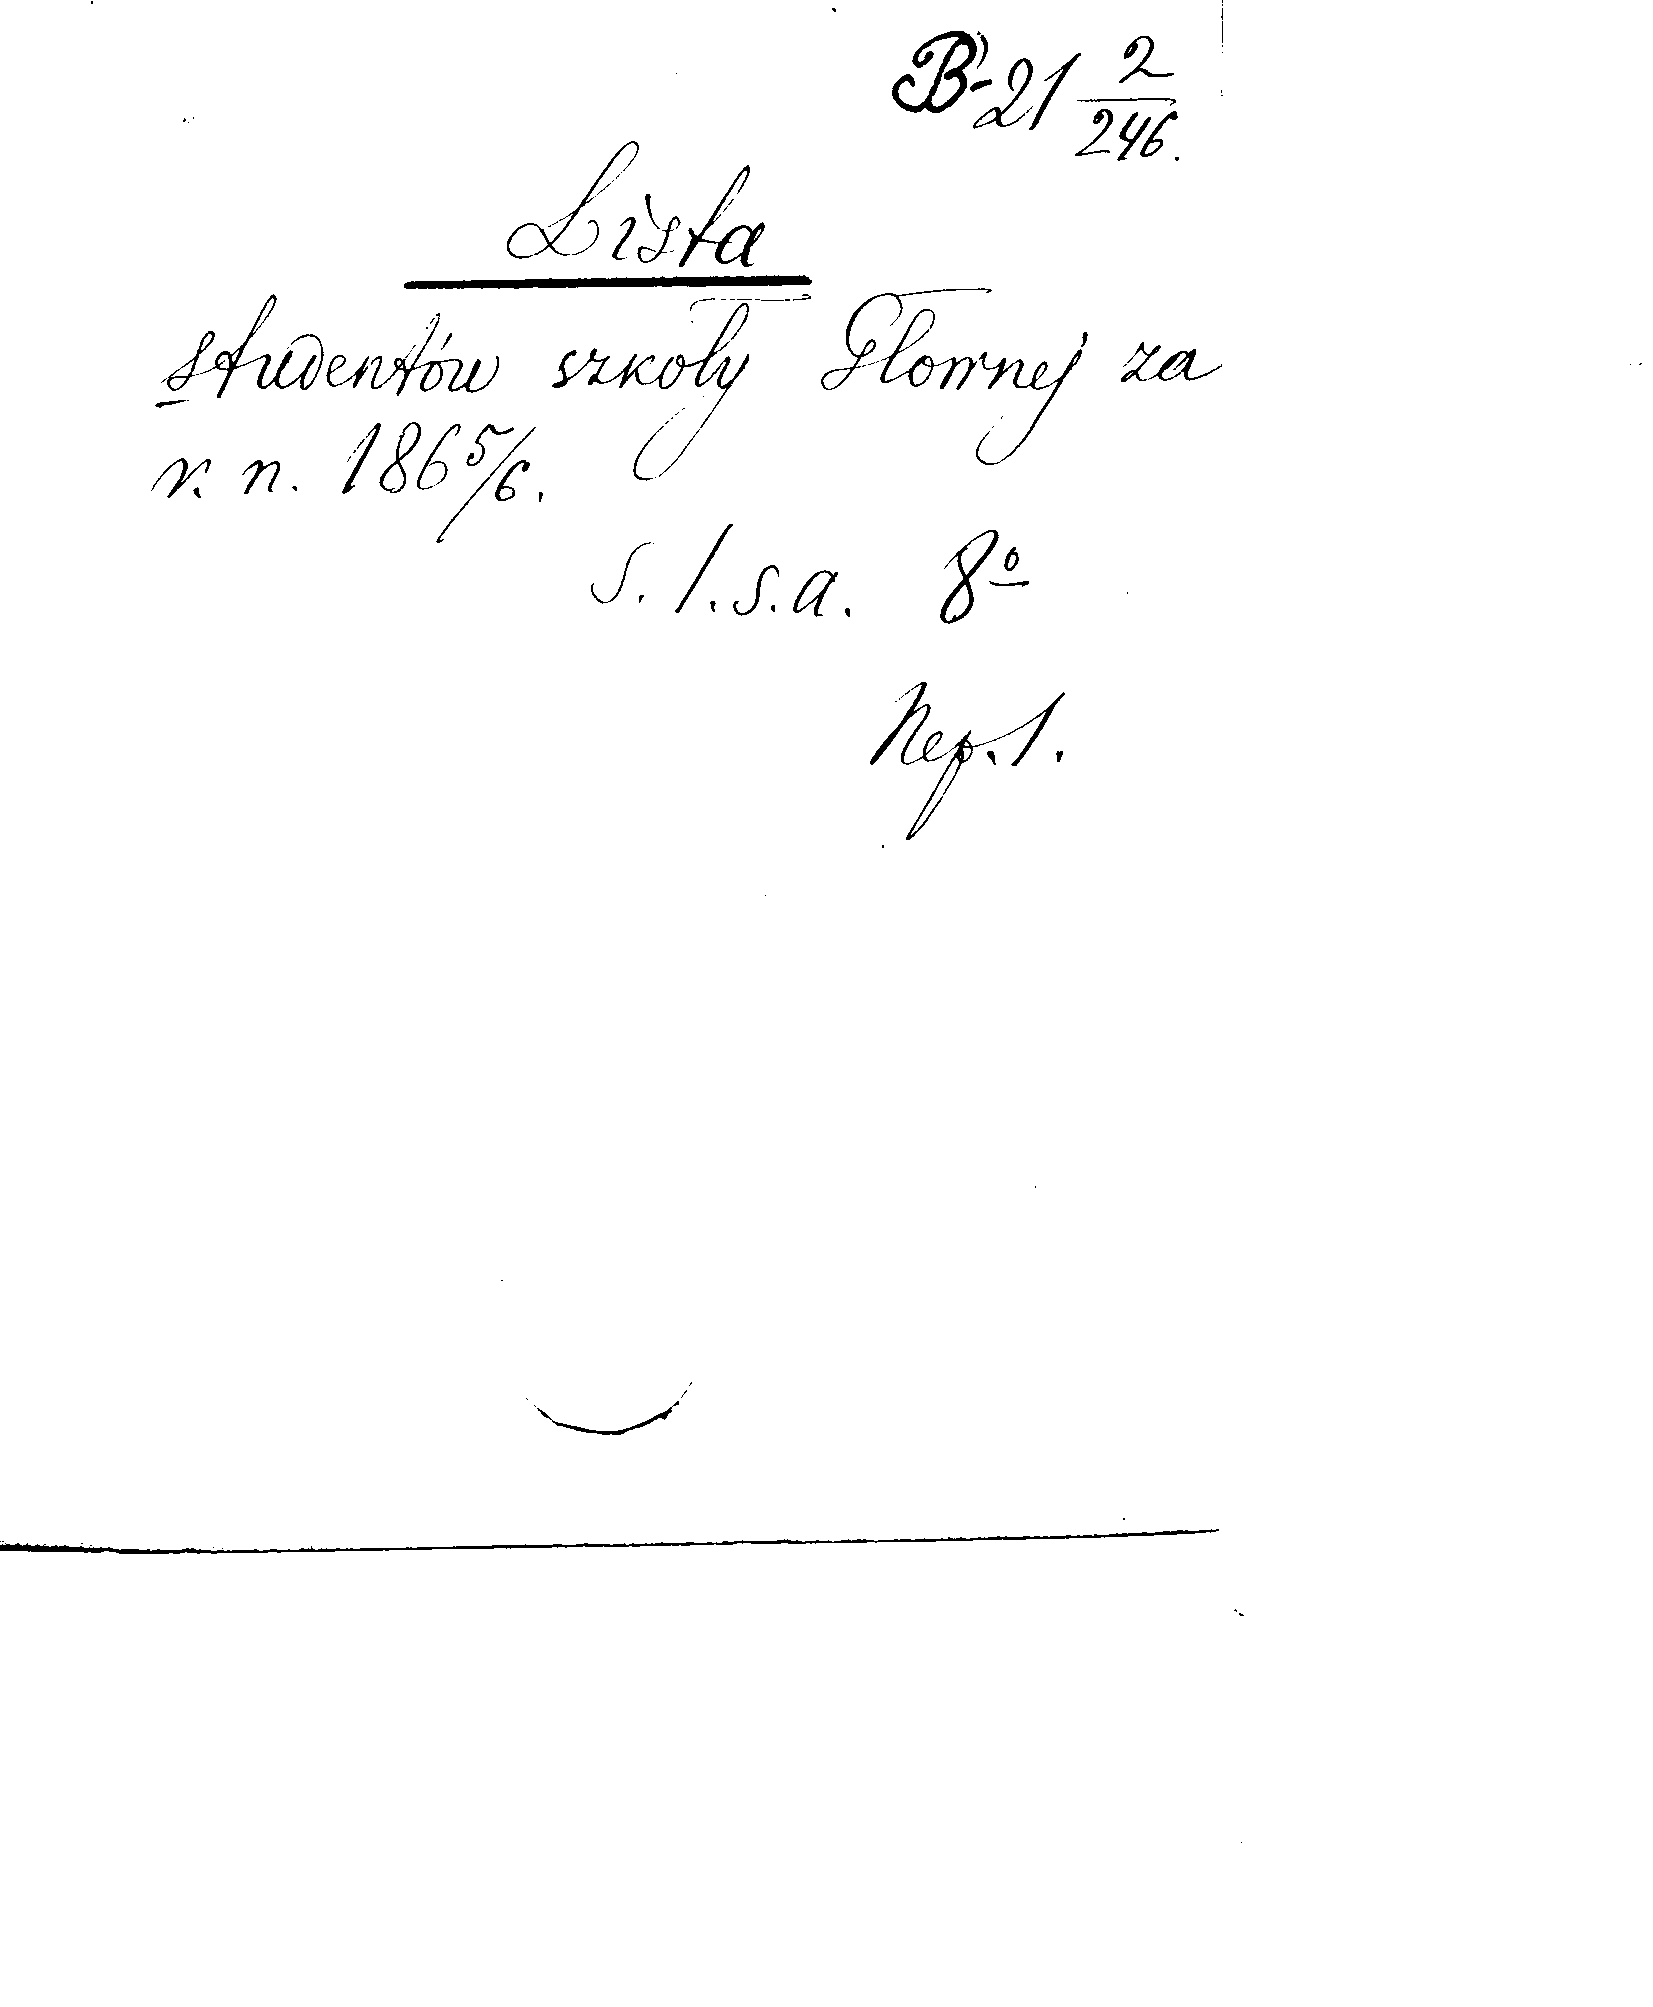 B-21 2/246.
Lista
studentów szkoły Głownej za
r. n. 1865/6.
s. l. s. a. 8º
Nep. 1.